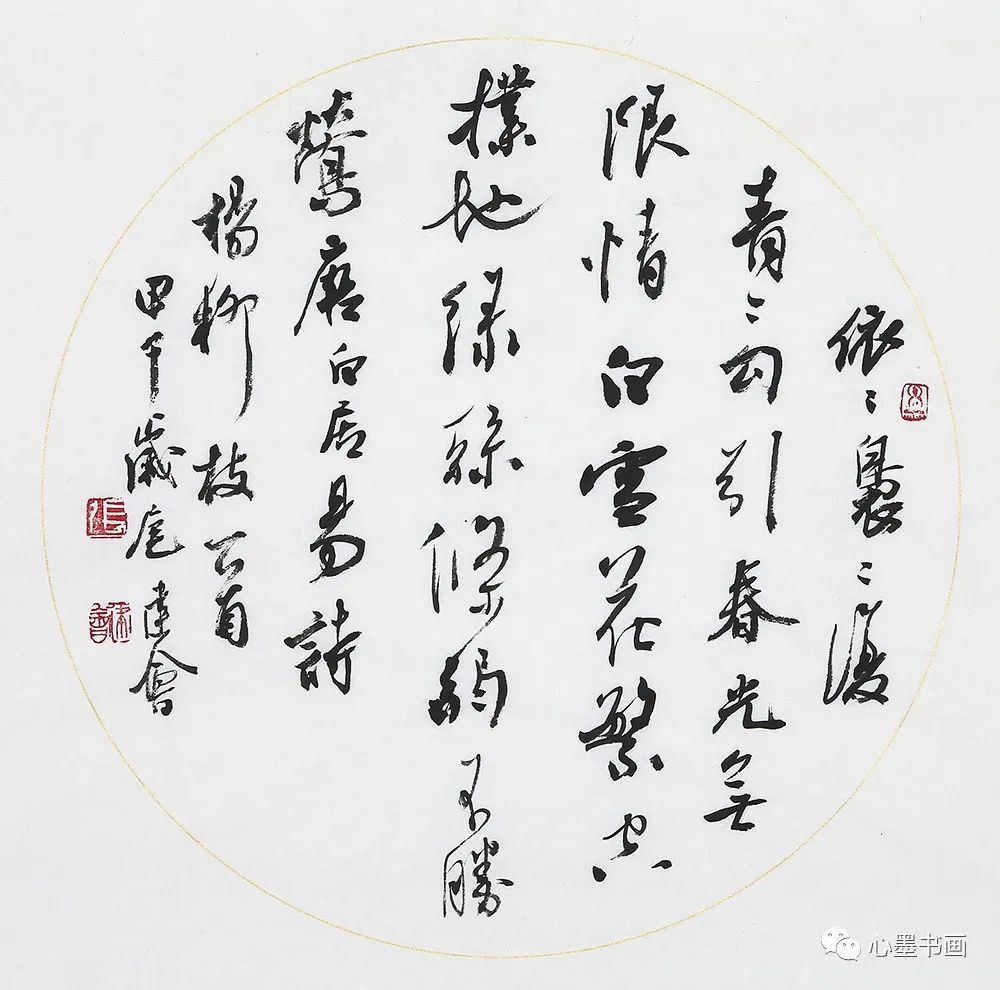 依〻裊〻復
青〻勾引春光無
限情白雪花繁空
撲地綠絲條弱不勝
鶯唐白居易詩
楊柳枝一首
甲午歲尾建會
心墨书画